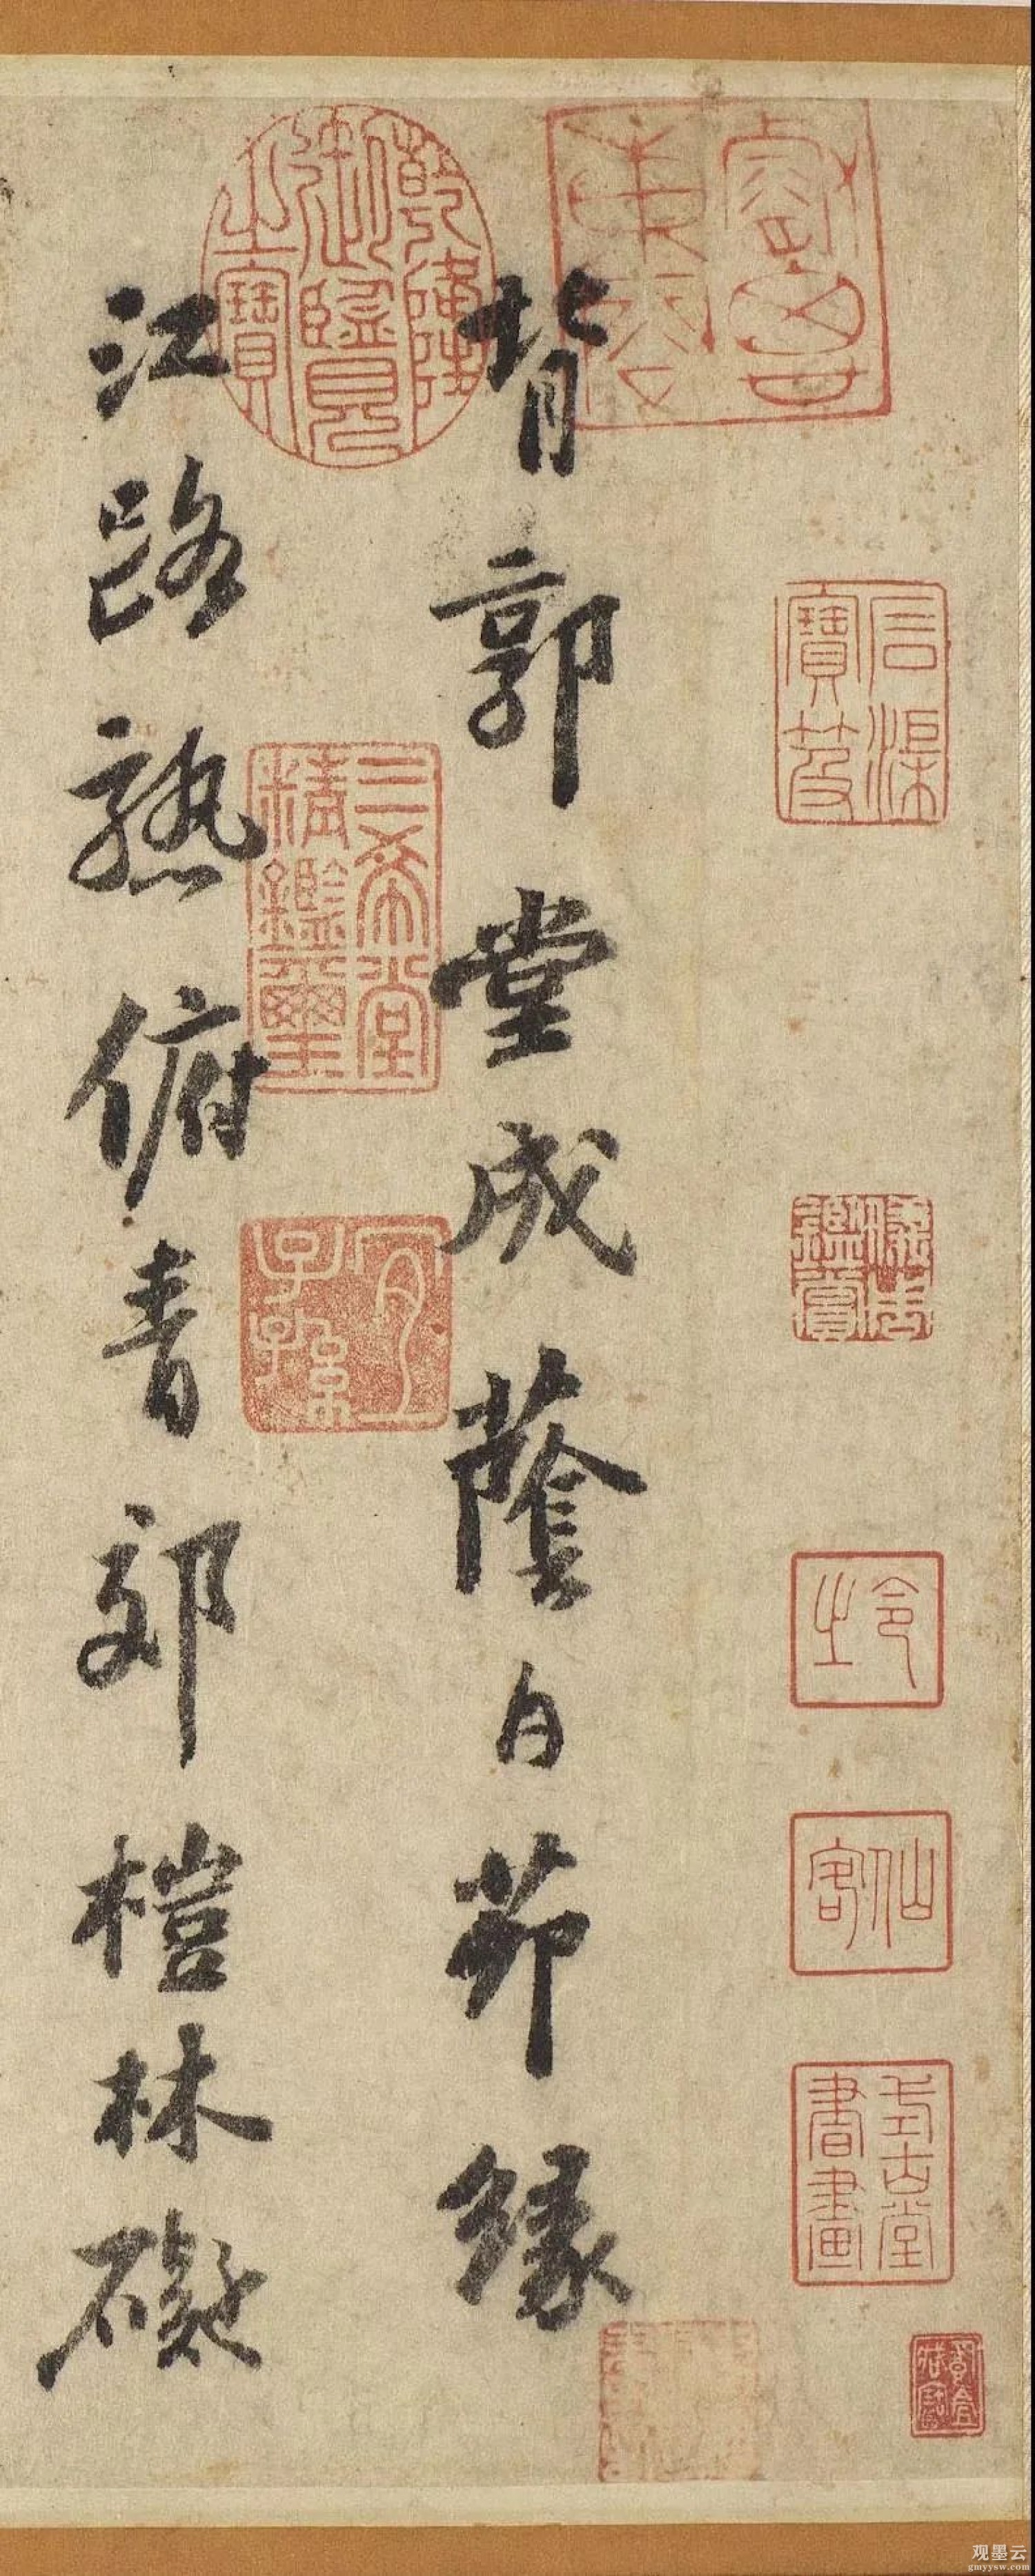 睿思東閣
石渠寶笈
儀周鑑賞
令之
仙客
式古堂書畫
背郭堂成蔭白茆緣
乾隆御覽之寶
三希堂精鑑璽
宜子孫
江路熟俯青郊榿林礙
观墨云
gmyysw.com